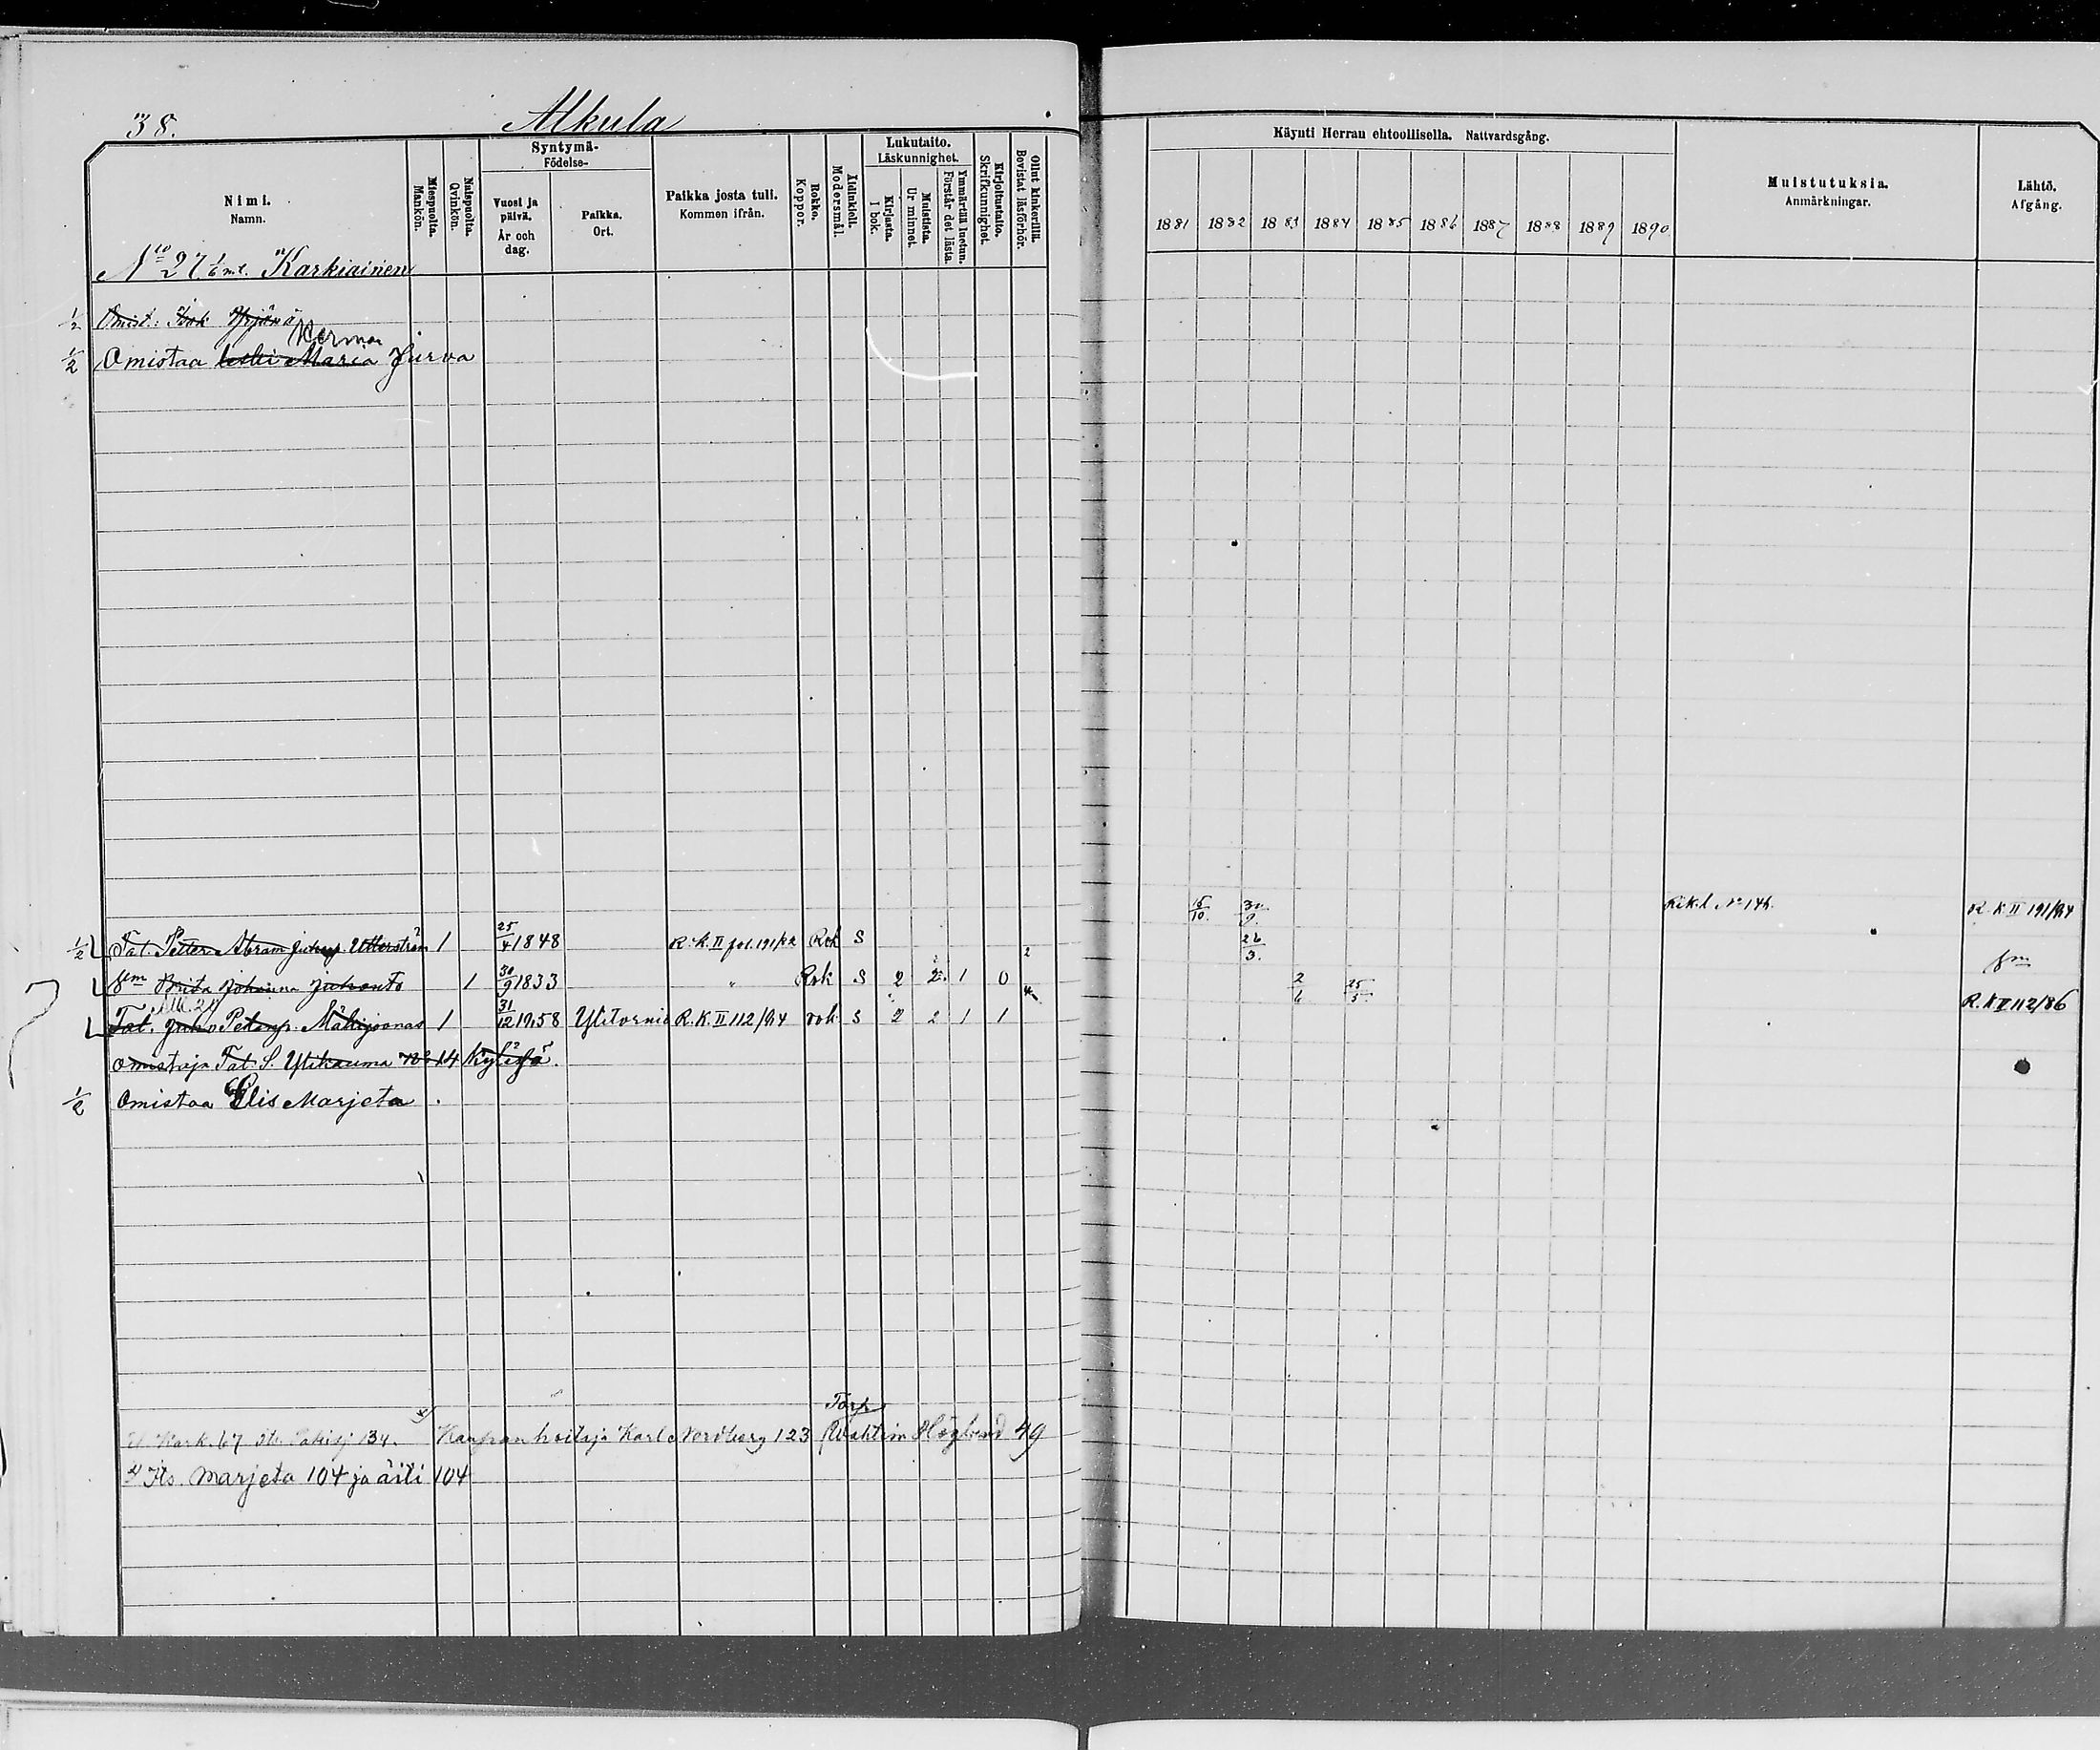 38.
Alkula
Nimi.
Namn.
Miespuolta.
Mankön.
Naispuolta.
Qvinkön.
Syntymä-
Födelse-
Vuosi ja
päivä.
År och
dag.
Paikka.
Ort.
Paikka josta tuli.
Kommen ifrån.
Rokko.
Koppor.
Äidinkieli.
Modersmål.
Lukutaito.
Läskunnighet.
Kirjasta.
I bok.
Muistista.
Ur minnet.
Ymmärtää luetun.
Förstår det lästa.
Kirjoitustaito.
Skrifkunnighet.
Ollut kinkerillä.
Bevistat läsförhör.
Käynti Herran ehtoollisella. Nattvardsgång.
1881 1882 1883 1884 1885 1886 1887 1888 1889 1890
Muistutuksia.
Anmärkningar.
Lähtö.
Afgång.
No 27 1/6 mt. Karkiainen
1/2 Omist: Isak Yrjänä
Herman
1/2 Omistaa leski Maria Jurva
15/10. 30/9. Kik.l No 146. R.K II 191/84
1/2 Tal. Petter Abram Utterström 1 25/4 1848 R.K. II fol. 191/82 Rok S 26/3.
Vm Brita Johanna Juhonts 1 30/9 1833 " Rok S 2 2. 1 0 2 2/6 25/5. Vm
Tal. Juho Peterp. Mäkijoonas 1 31/12 1958 Ylitornio R.K. II 112/84 rok S 2 2 1 1 R.K II 112/86
omistaja Tal. S. Ylikauma No 14 Kylässä.
1/2 Omistaa Elis Marjeta
Torp
Kark. 67 134. Kaupanhoitaja Karl Nordberg 123 Höglund 49
Its. Marjeta 104 ja äiti 104